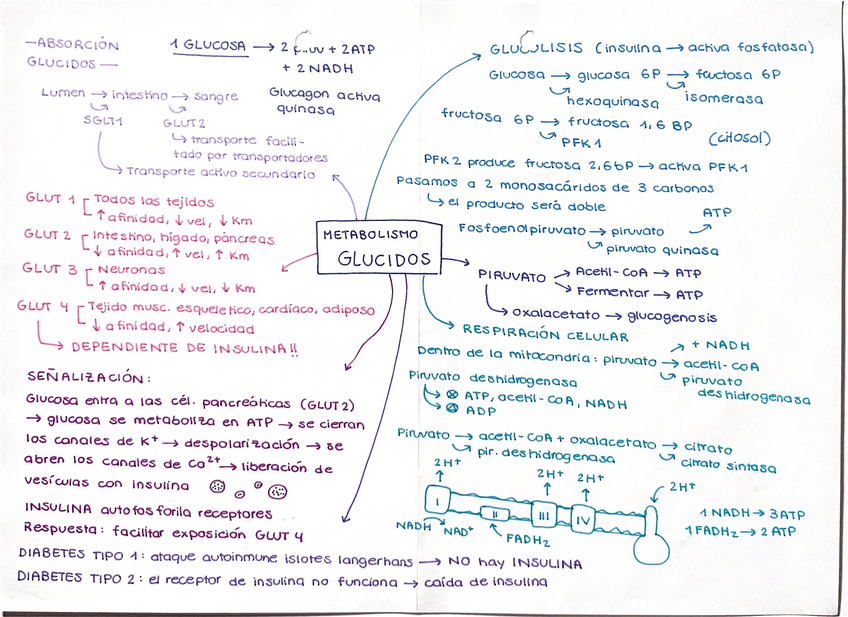 —ABSORCIÓN
GLUCIDOS—
1 GLUCOSA → 2 + 2ATP
+ 2 NADH
Glucagon activa
quinasa
Lumen → intestino → sangre
SGLT1 GLUT2
↳ transporte facili-
tado por transportadores
→ Transporte activo secundario
GLUT 1 Todos los tejidos
↑ afinidad, ↓ vel, ↓ Km
GLUT 2 Intestino, hígado, páncreas
↓ afinidad, ↑ vel, ↑ Km
GLUT 3 Neuronas
↑ afinidad, ↓ vel, ↓ Km
GLUT 4 Tejido musc. esquelético, cardíaco, adiposo
↓ afinidad, ↑ velocidad
→ DEPENDIENTE DE INSULINA!!
METABOLISMO
GLUCIDOS
GLUCOLISIS (insulina → activa fosfatasa)
Glucosa → glucosa 6P → fructosa 6P
hexoquinasa isomerasa
fructosa 6P → fructosa 1,6 BP
PFK1 (citosol)
PFK2 produce fructosa 2,6bP → activa PFK1
Pasamos a 2 monosacáridos de 3 carbonos
↳ el producto será doble
ATP
Fosfoenolpiruvato → piruvato
piruvato quinasa
PIRUVATO → Acetil-CoA → ATP
→ Fermentar → ATP
→ oxalacetato → glucogenosis
RESPIRACIÓN CELULAR
+ NADH
Dentro de la mitocondria: piruvato → acetil-CoA
piruvato
deshidrogenasa
Piruvato deshidrogenasa
ATP, acetil-CoA, NADH
ADP
Piruvato → acetil-CoA + oxalacetato → citrato
pir. deshidrogenasa citrato sintasa
2H+ 2H+ 2H+ 2H+
I II III IV
NADH NAD+ FADH2
1 NADH → 3ATP
1 FADH2 → 2 ATP
SEÑALIZACIÓN:
Glucosa entra a las cél. pancreáticas (GLUT2)
→ glucosa se metaboliza en ATP → se cierran
los canales de K+ → despolarización → se
abren los canales de Ca2+ → liberación de
vesículas con insulina
INSULINA autofosforila receptores
Respuesta: facilitar exposición GLUT 4
DIABETES TIPO 1: ataque autoinmune islotes langerhans → NO hay INSULINA
DIABETES TIPO 2: el receptor de insulina no funciona → caída de insulina